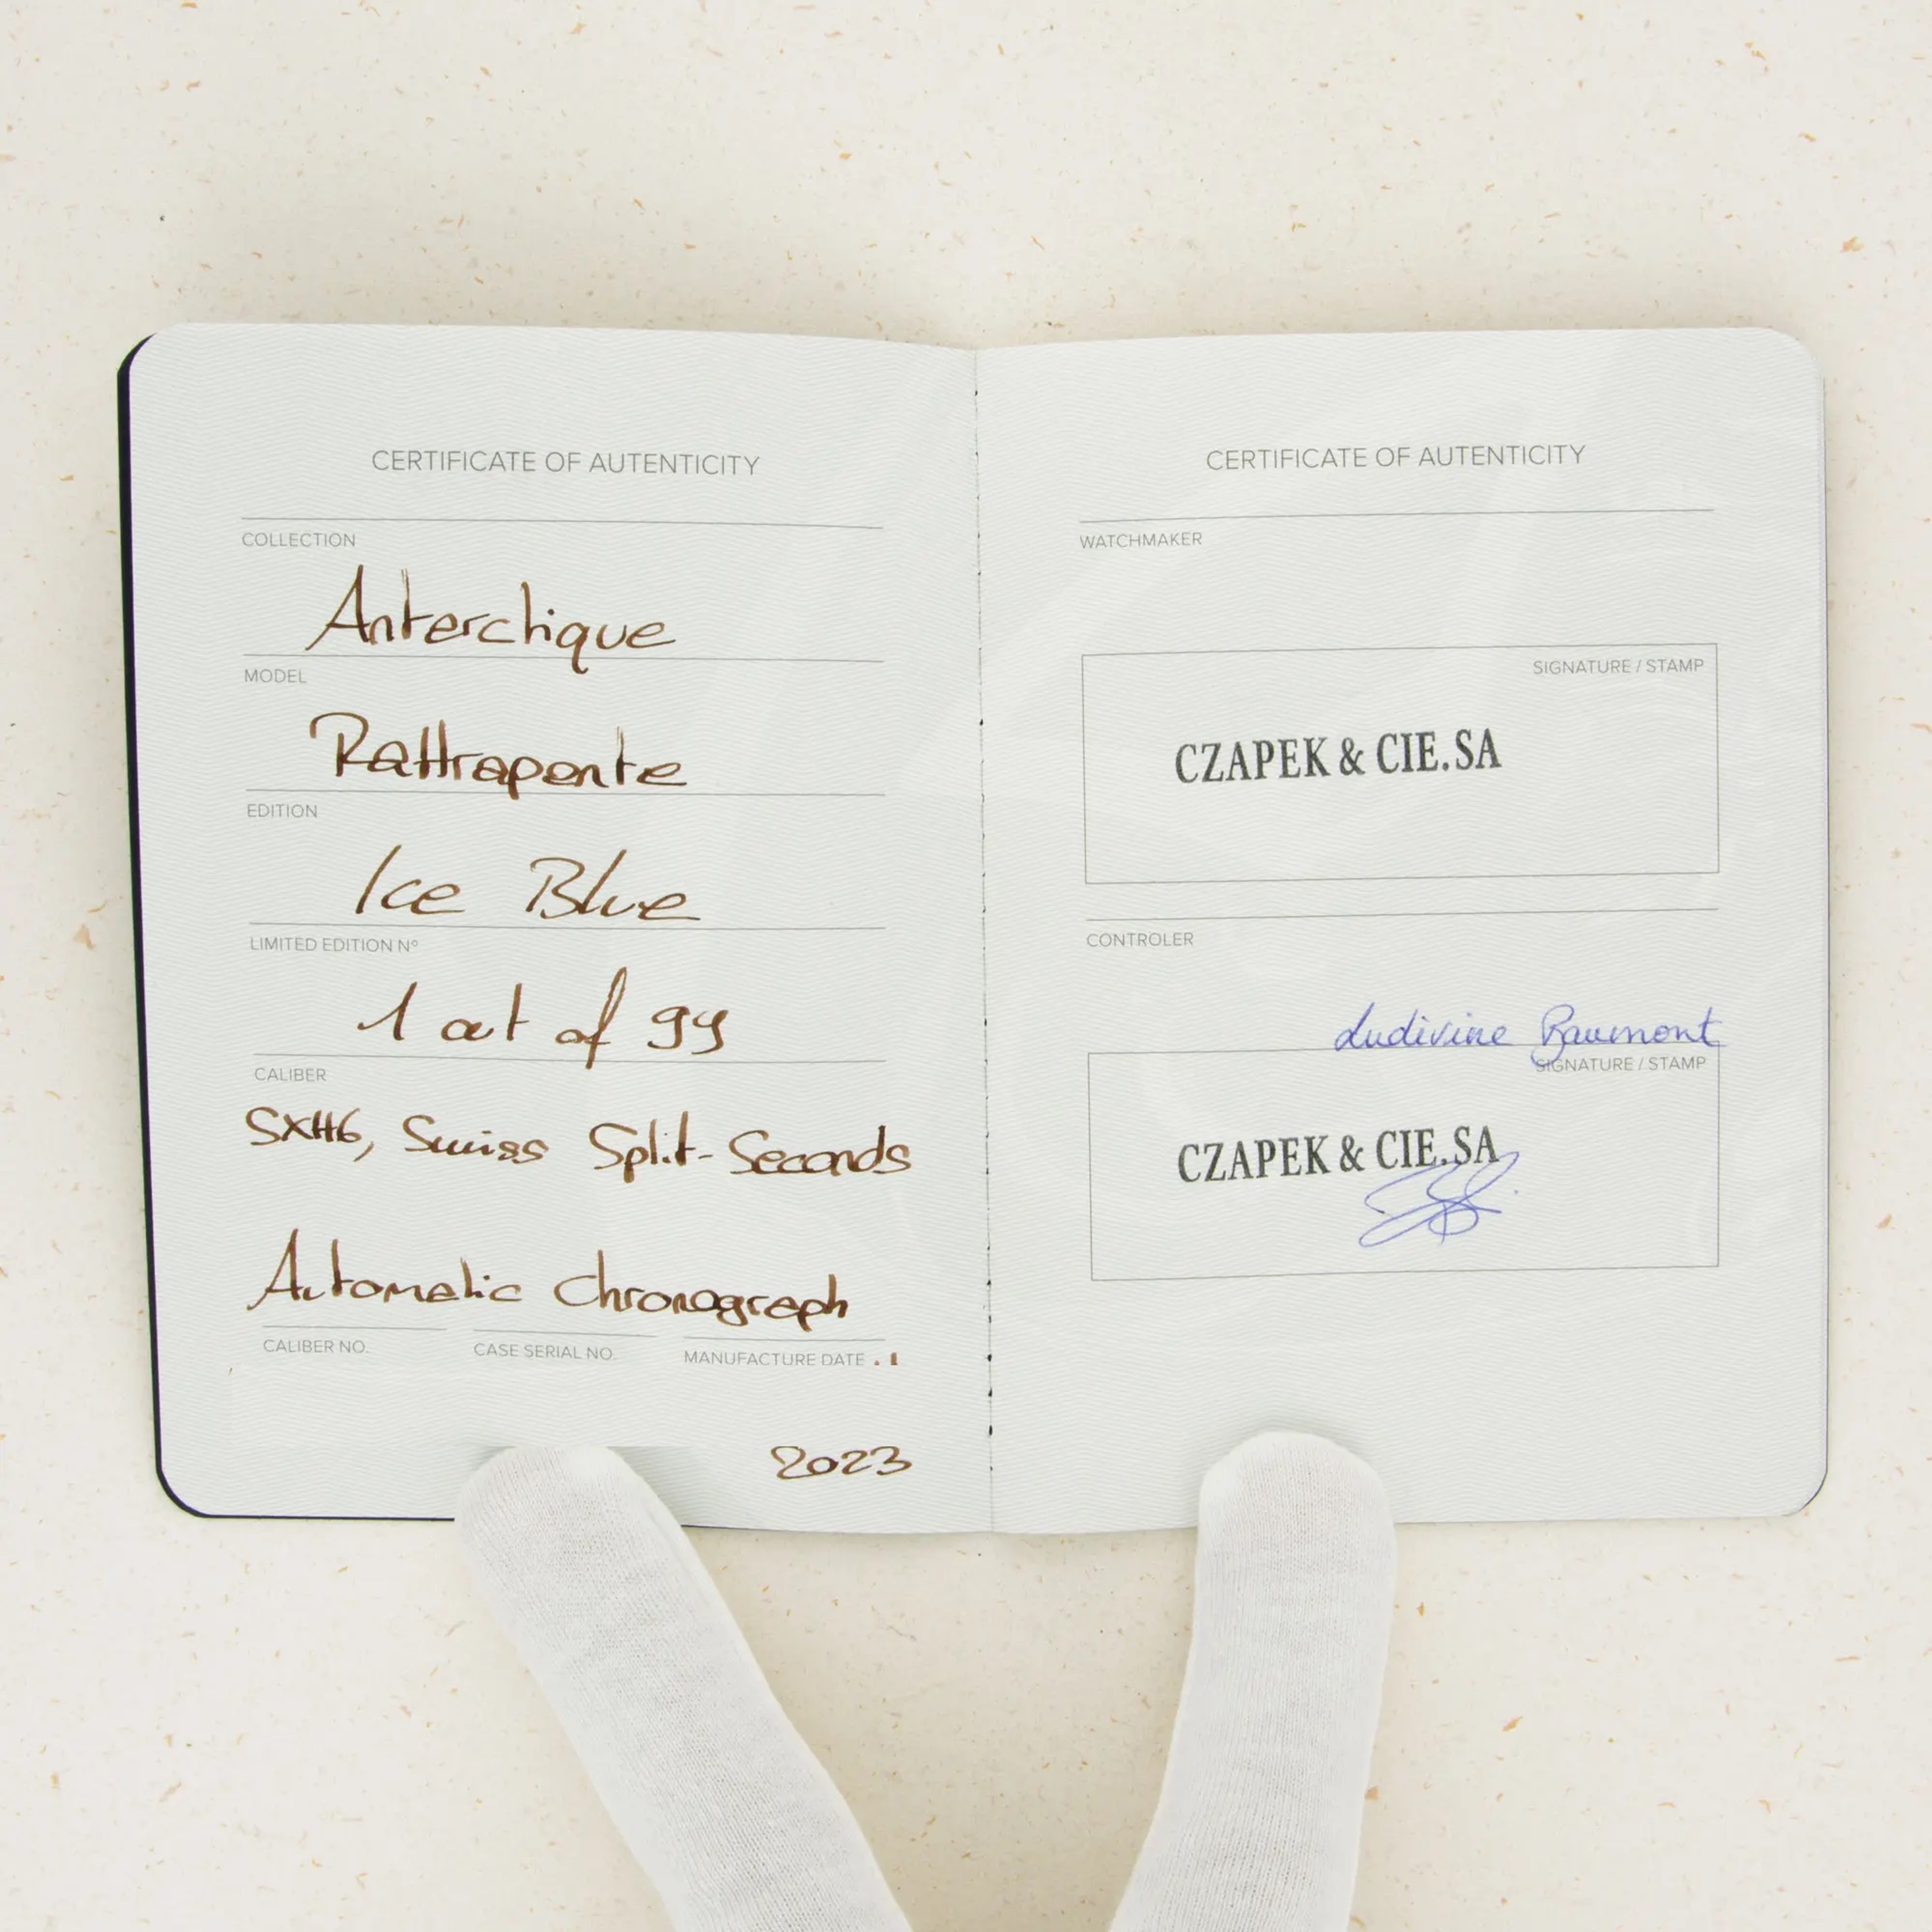 CERTIFICATE OF AUTENTICITY
COLLECTION
Anterctique
MODEL
Rattrapante
EDITION
Ice Blue
LIMITED EDITION Nº
1 out of 99
CALIBER
SXH6, Swiss Split-Seconds
Automatic Chronograph
CALIBER NO.
CASE SERIAL NO.
MANUFACTURE DATE
2023
CERTIFICATE OF AUTENTICITY
WATCHMAKER
SIGNATURE / STAMP
CZAPEK & CIE.SA
CONTROLER
Ludivine
SIGNATURE / STAMP
CZAPEK & CIE.SA